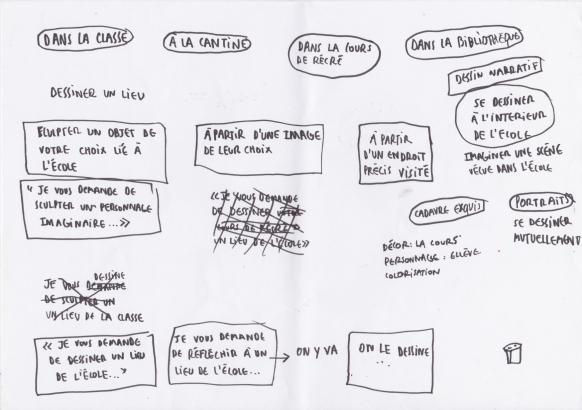 DANS LA CLASSE
À LA CANTINE
DANS LA COURS
DE RÉCRÉ
DANS LA BIBLIOTHÈQUE
DESSIN NARRATIF
DESSINER UN LIEU
SE DESSINER
À L'INTERIEUR
DE L'ECOLE
SCULPTER UN OBJET DE
VOTRE CHOIX LIÉ À
L'ÉCOLE
À PARTIR D'UNE IMAGE
DE LEUR CHOIX
À PARTIR
D'UN ENDROIT
PRÉCIS VISITÉ
IMAGINER UNE SCÈNE
VÉCUE DANS L'ÉCOLE
« JE VOUS DEMANDE DE
SCULPTER UN PERSONNAGE
IMAGINAIRE...»
«JE VOUS DEMANDE
DE DESSINER VOTRE
COURS DE RÉCRÉ
UN LIEU DE L'ECOLE»
CADAVRE EXQUIS
DÉCOR: LA COURS
PERSONNAGE : ELLÈVE
COLORISATION
PORTRAITS
SE DESSINER
MUTUELLEMENT
DESSINE
JE VOUS DEMANDE
DE SCULPTER UN
UN LIEU DE LA CLASSE
« JE VOUS DEMANDE
DE DESSINER UN LIEU
DE L'ÉCOLE...»
JE VOUS DEMANDE
DE RÉFLÉCHIR À UN
LIEU DE L'ÉCOLE...
ON Y VA
ON LE DESSINE
...